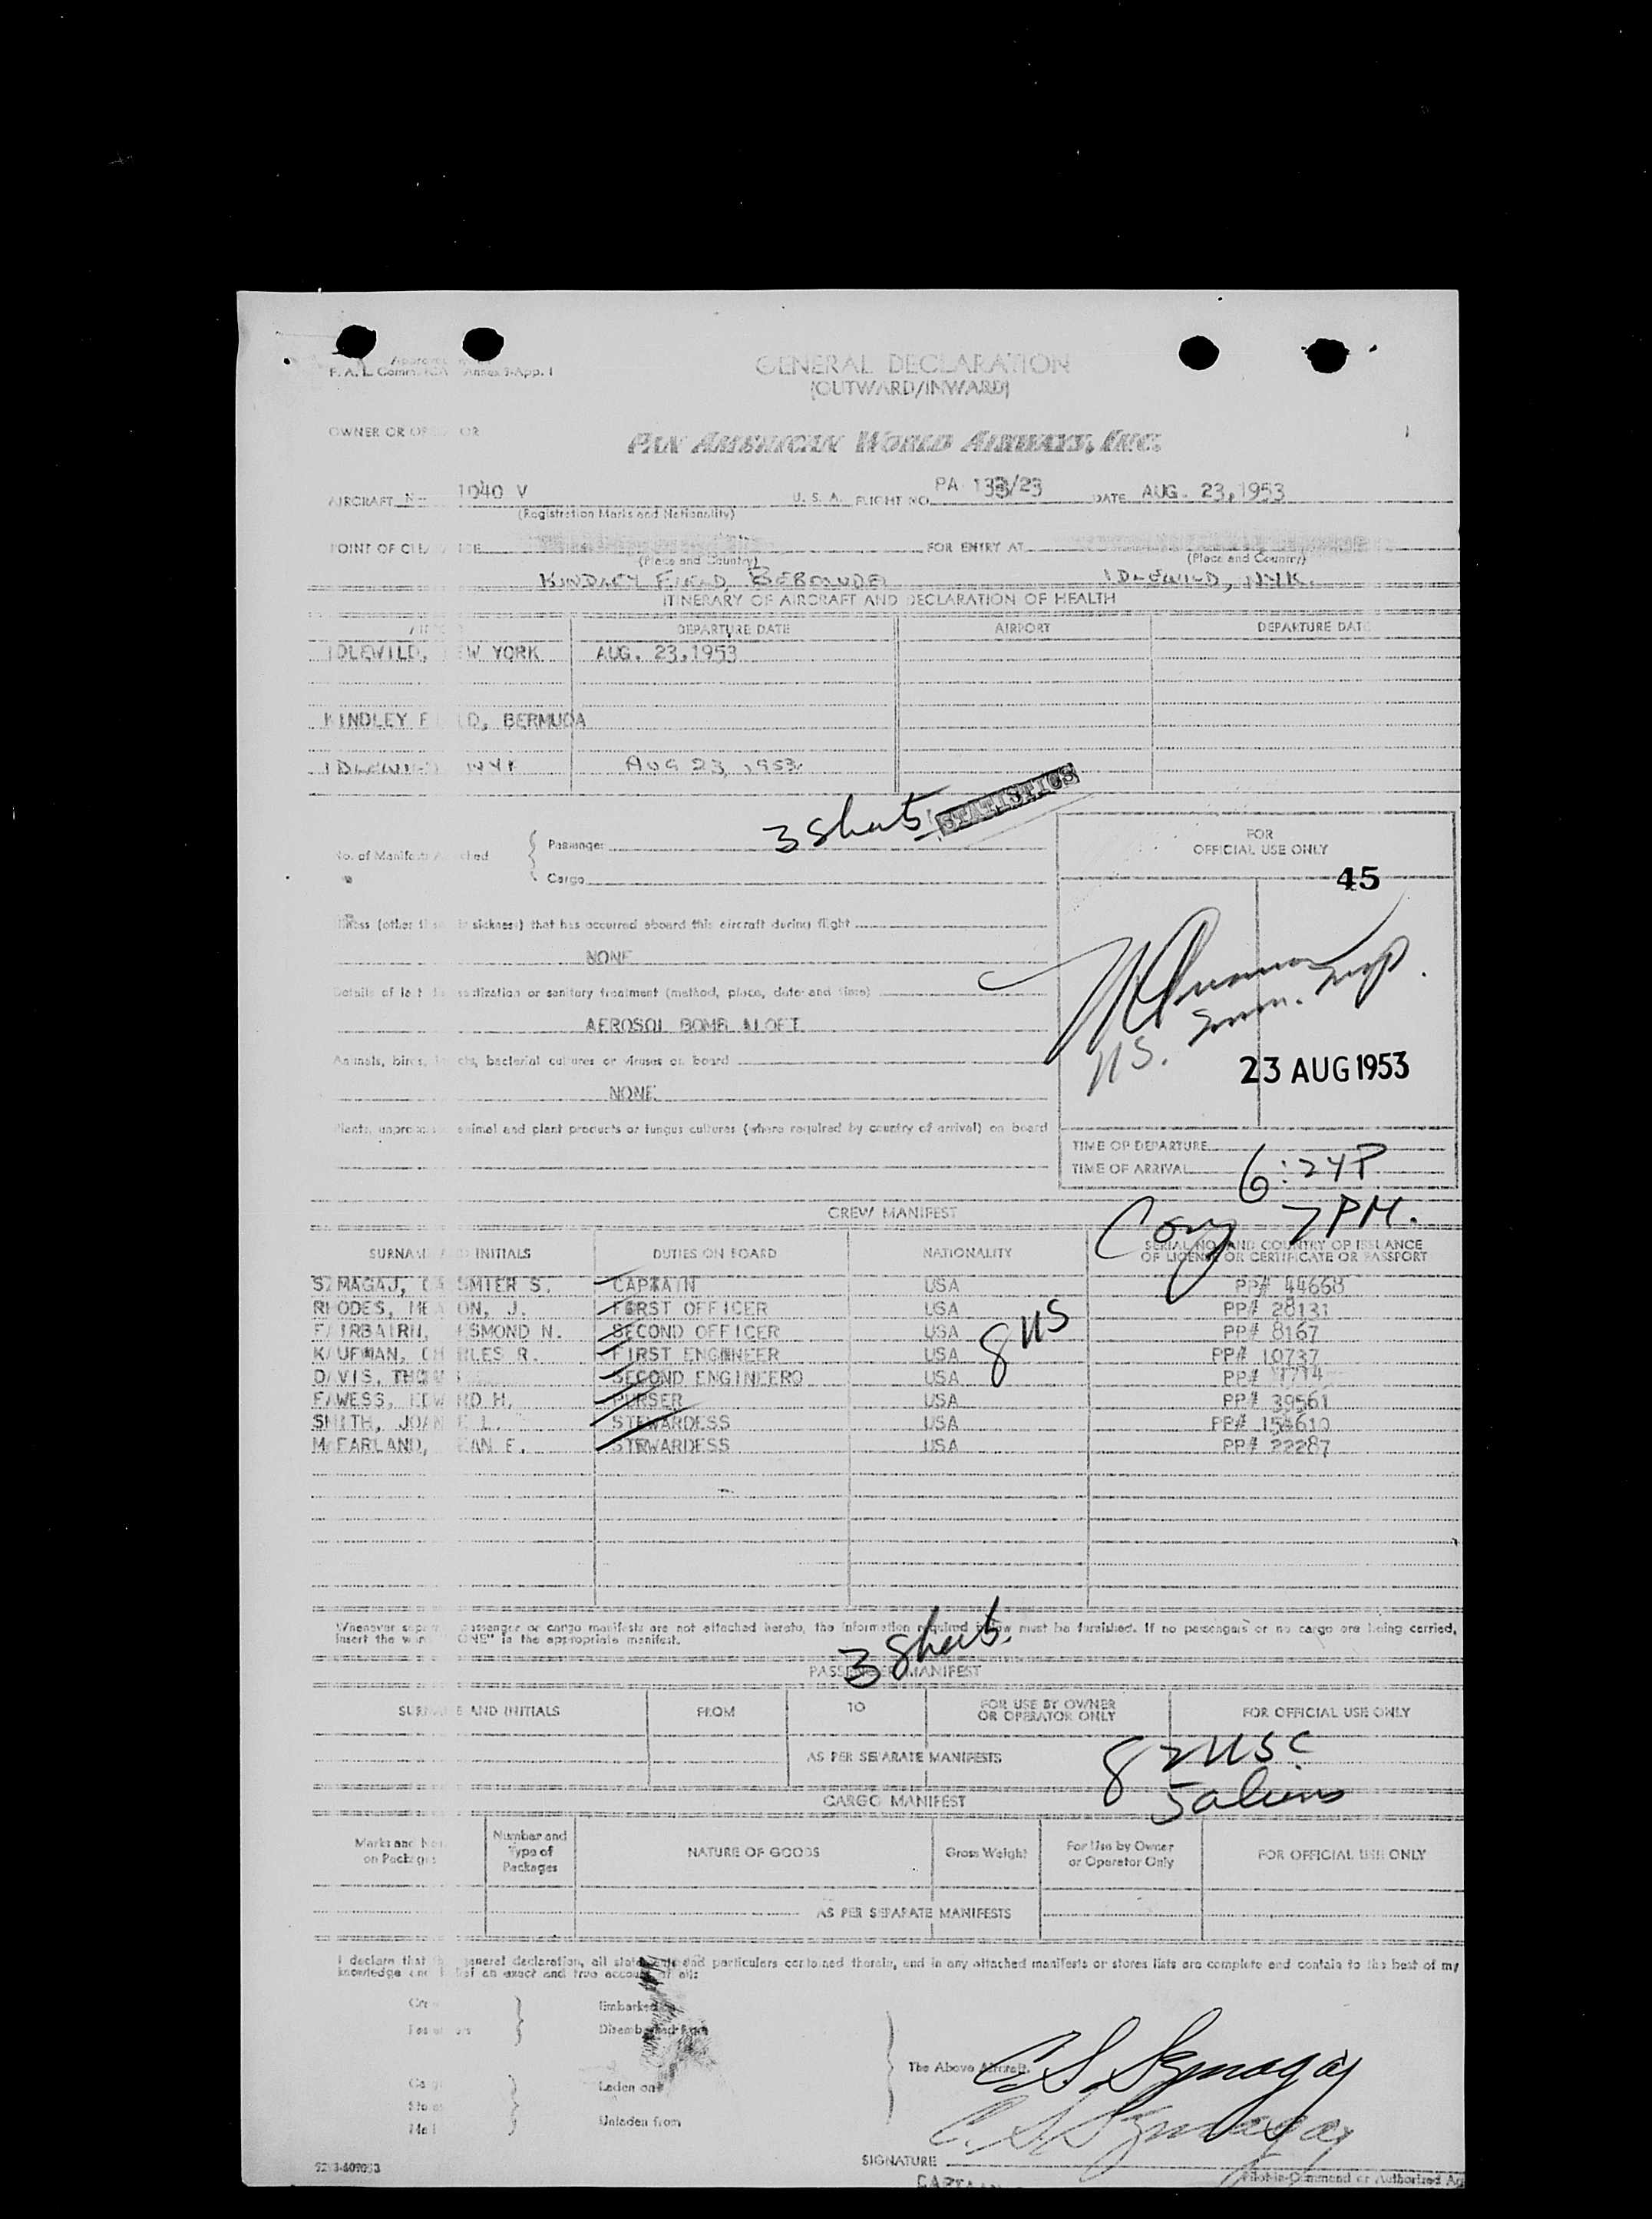 F. A. L. Annex 9-App. 1
GENERAL DECLARATION
(OUTWARD/INWARD)
OWNER OR
PAN AMERICAN WORLD AIRWAYS, INC.
AIRCRAFT N- 1040 V U. S. A. FLIGHT NO. PA 133/23 DATE AUG. 23, 1953
(Registration Marks and Nationality)
POINT OF FOR ENTRY AT
(Place and Country) (Place and Country)
KINDLEY FIELD, BERMUDA IDLEWILD, NYK.
ITINERARY OF AIRCRAFT AND DECLARATION OF HEALTH
DEPARTURE DATE AIRPORT DEPARTURE DAT
IDLEWILD, W YORK AUG. 23, 1953
KINDLEY F LD, BERMUDA
IDLEWILD NYK AUG 23, 1953
3 Sheets STATISTICS
No. of Manifests Passenger
Cargo
FOR
OFFICIAL USE ONLY
45
(other sickness) that has occurred aboard this aircraft during flight
NONE
Details of or sanitary treatment (method, place, date and time)
AEROSOL BOMB ALOFT
U.S. Imm. Insp.
23 AUG 1953
Animals, birds, bacterial cultures or viruses on board
NONE
Plants, animal and plant products or fungus cultures (where required by country of arrival) on board
TIME OF DEPARTURE
TIME OF ARRIVAL 6:24P
7 PM.
CREW MANIFEST
INITIALS DUTIES ON BOARD NATIONALITY SERIAL NO. AND COUNTRY OF ISSUANCE
OF LICENSE OR CERTIFICATE OR PASSPORT
SZMAGAJ, CA SMIER S. CAPTAIN USA PP# 44668
RHODES, J. FIRST OFFICER USA PP# 28131
FAIRBAIRN, ESMOND N. SECOND OFFICER USA PP# 8167
8 US
KAUFMAN, CH RLES R. FIRST ENGINEER USA PP# 10737
DAVIS, SECOND ENGINEERO USA PP#
FAWESS, EDW RD H. PURSER USA PP# 39561
SMITH, JOAN L. STEWARDESS USA PP# 154610
McFARLAND, EAN E. STEWARDESS USA PP# 22287
Whenever passenger or cargo manifests are not attached hereto, the information required below must be furnished. If no passengers or no cargo are being carried,
insert the in the appropriate manifest.
3 Sheets.
PASSENGER MANIFEST
AND INITIALS FROM TO FOR USE BY OWNER
OR OPERATOR ONLY
FOR OFFICIAL USE ONLY
AS PER SEPARATE MANIFESTS
82 USC
5 aliens
CARGO MANIFEST
Marks and
on Packages
Number and
Type of
Packages
NATURE OF GOODS
Gross Weight
For Use by Owner
or Operator Only
FOR OFFICIAL USE ONLY
AS PER SEPARATE MANIFESTS
I declare that general declaration, all statements and particulars contained therein, and in any attached manifests or stores lists are complete and contain to the best of my
knowledge and an exact and true account of all:
Embarked on
Disembarked from
The Above Aircraft.
Laden on
Unladen from
C. S. Szmagaj
C. S. Szmagaj
SIGNATURE
Pilot-in-Command or Authorized Ag